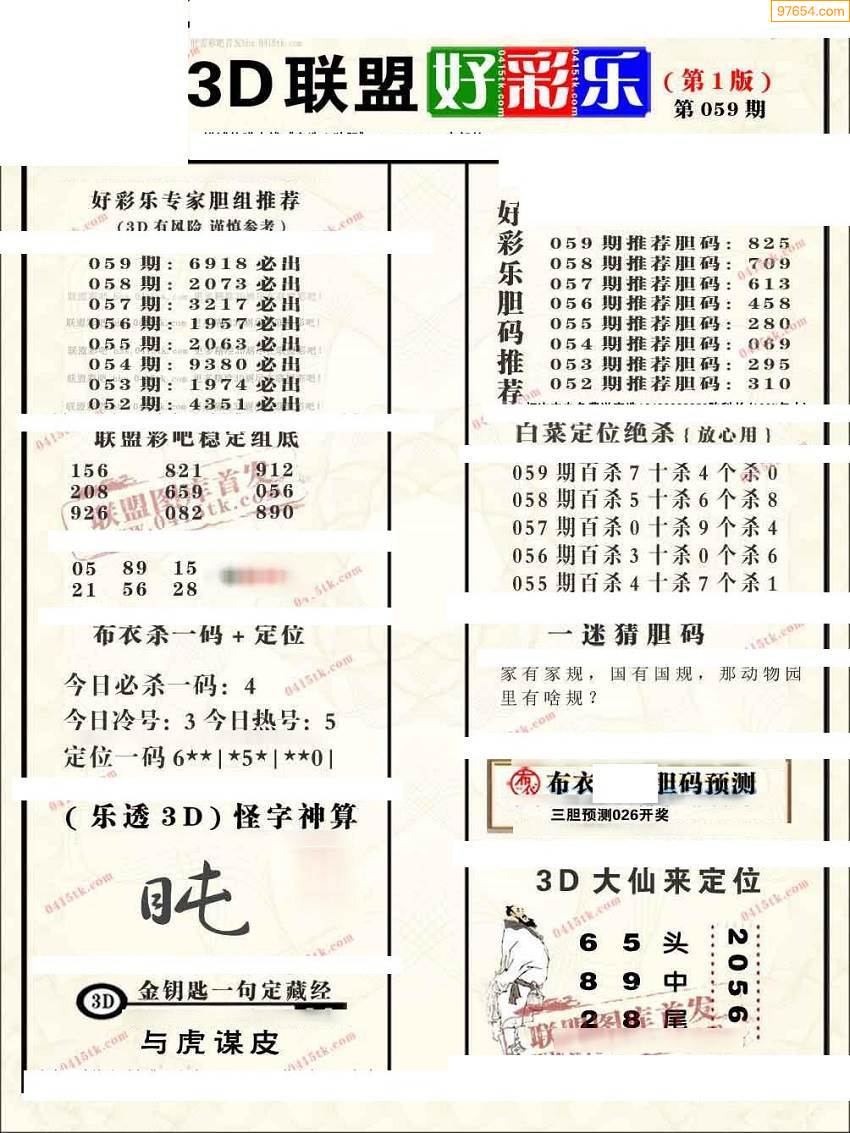 97654.com
3D联盟好彩乐
(第1版)
第059期
好彩乐专家胆组推荐
(3D有风险 谨慎参考)
059期：6918必出
058期：2073必出
057期：3217必出
056期：1957必出
055期：2063必出
054期：9380必出
053期：1974必出
052期：4351必出
联盟彩吧稳定组底
156 821 912
208 659 056
926 082 890
05 89 15
21 56 28
布衣杀一码+定位
今日必杀一码：4
今日冷号：3 今日热号：5
定位一码6**|*5*|**0|
(乐透3D)怪字神算
3D
金钥匙一句定藏经
与虎谋皮
好彩乐胆码推荐
059期推荐胆码：825
058期推荐胆码：709
057期推荐胆码：613
056期推荐胆码：458
055期推荐胆码：280
054期推荐胆码：069
053期推荐胆码：295
052期推荐胆码：310
白菜定位绝杀{放心用}
059期百杀7十杀4个杀0
058期百杀5十杀6个杀8
057期百杀0十杀9个杀4
056期百杀3十杀0个杀6
055期百杀4十杀7个杀1
一迷猜胆码
家有家规，国有国规，那动物园
里有啥规？
布衣 胆码预测
三胆预测026开奖
3D大仙来定位
6 5 头
8 9 中
2 8 尾
2056
联盟图库首发
www.0415tk.com
联盟图库首发
0415tk.com